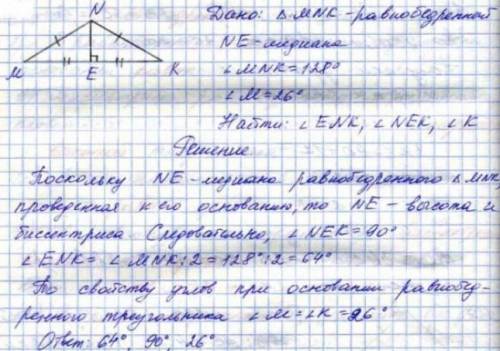 N
Дано: △ MNK - равнобедренный
NE - медиана
∠ MNK = 128°
∠ M = 26°
M E K
Найти: ∠ ENK, ∠ NEK, ∠ K
Решение
Поскольку NE - медиана равнобедренного △ MNK
проведенная к его основанию, то NE - высота и
биссектриса Следовательно, ∠ NEK = 90°
∠ ENK = ∠ MNK : 2 = 128° : 2 = 64°
По свойству углов при основании равнобед-
ренного треугольника ∠ M = ∠ K = 26°
Ответ: 64°, 90°, 26°